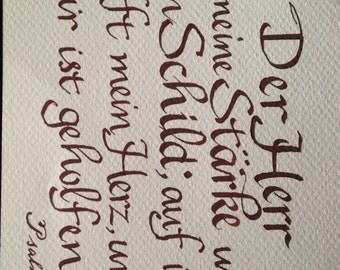 Der Herr
meine Stärke u
Schild; auf i
ft mein Herz, un
ir ist geholfen
Psal